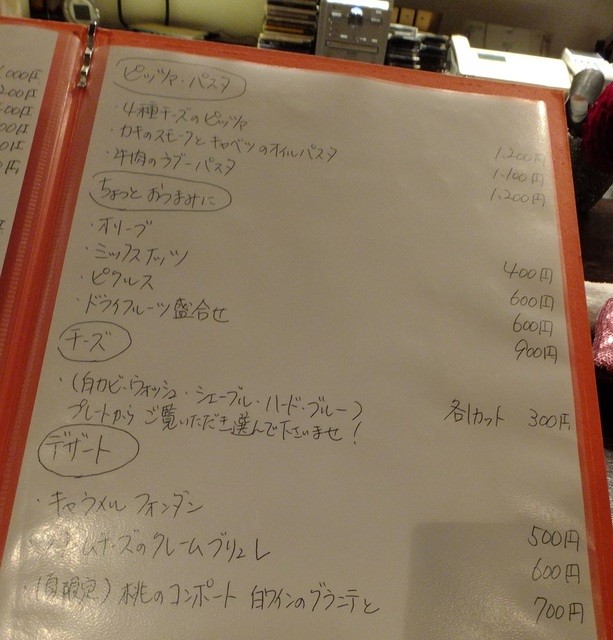 ,000円
200円
ピッツァ・パスタ
・4種チーズのピッツァ 1,200円
・カキのスモークとキャベツのオイルパスタ 1,100円
・牛肉のラグーパスタ 1,200円
ちょっとおつまみに
・オリーブ 400円
・ミックスナッツ 600円
・ピクルス 600円
・ドライフルーツ盛合せ 900円
チーズ
・(白カビ・ウォッシュ・シェーブル・ハード・ブルー) 各1カット 300円
プレートからご覧いただき選んで下さいませ!
デザート
・キャラメルフォンダン 500円
ムチーズのクレームブリュレ 600円
・(夏限定) 桃のコンポート 白ワインのグラニテと 700円